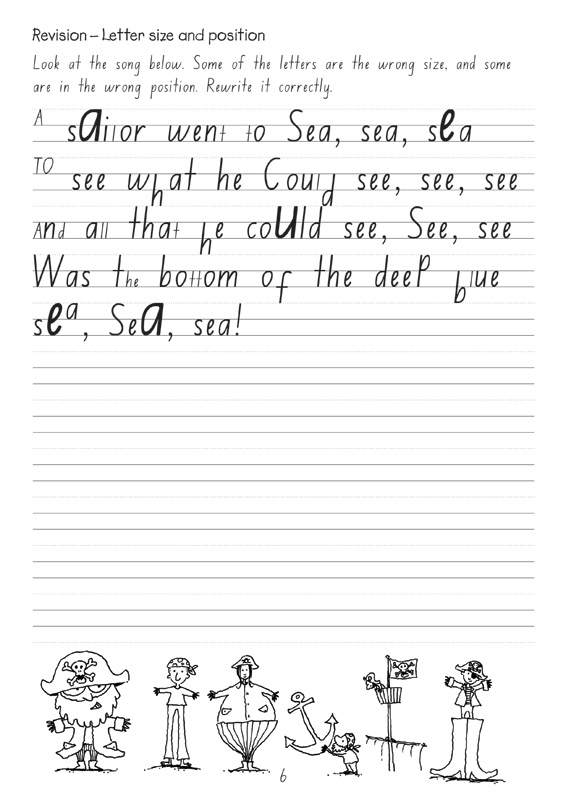 Revision – Letter size and position
Look at the song below. Some of the letters are the wrong size, and some
are in the wrong position. Rewrite it correctly.
A sailor went to Sea, sea, sea
TO see what he Could see, see, see
And all that he coUld see, See, see
Was the bottom of the deeP blue
sea, Sea, sea!
6